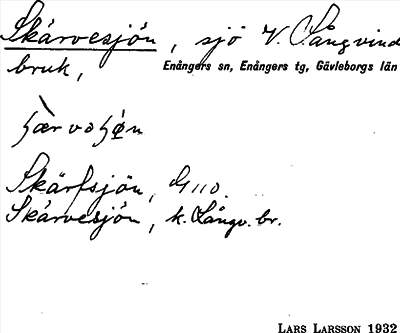 Skärvesjön, sjö V. Långvind
bruk,
Enångers sn, Enångers tg, Gävleborgs län
Skärfsjön, G110.
Skärvesjön, k. Långv. br.
LARS LARSSON 1932